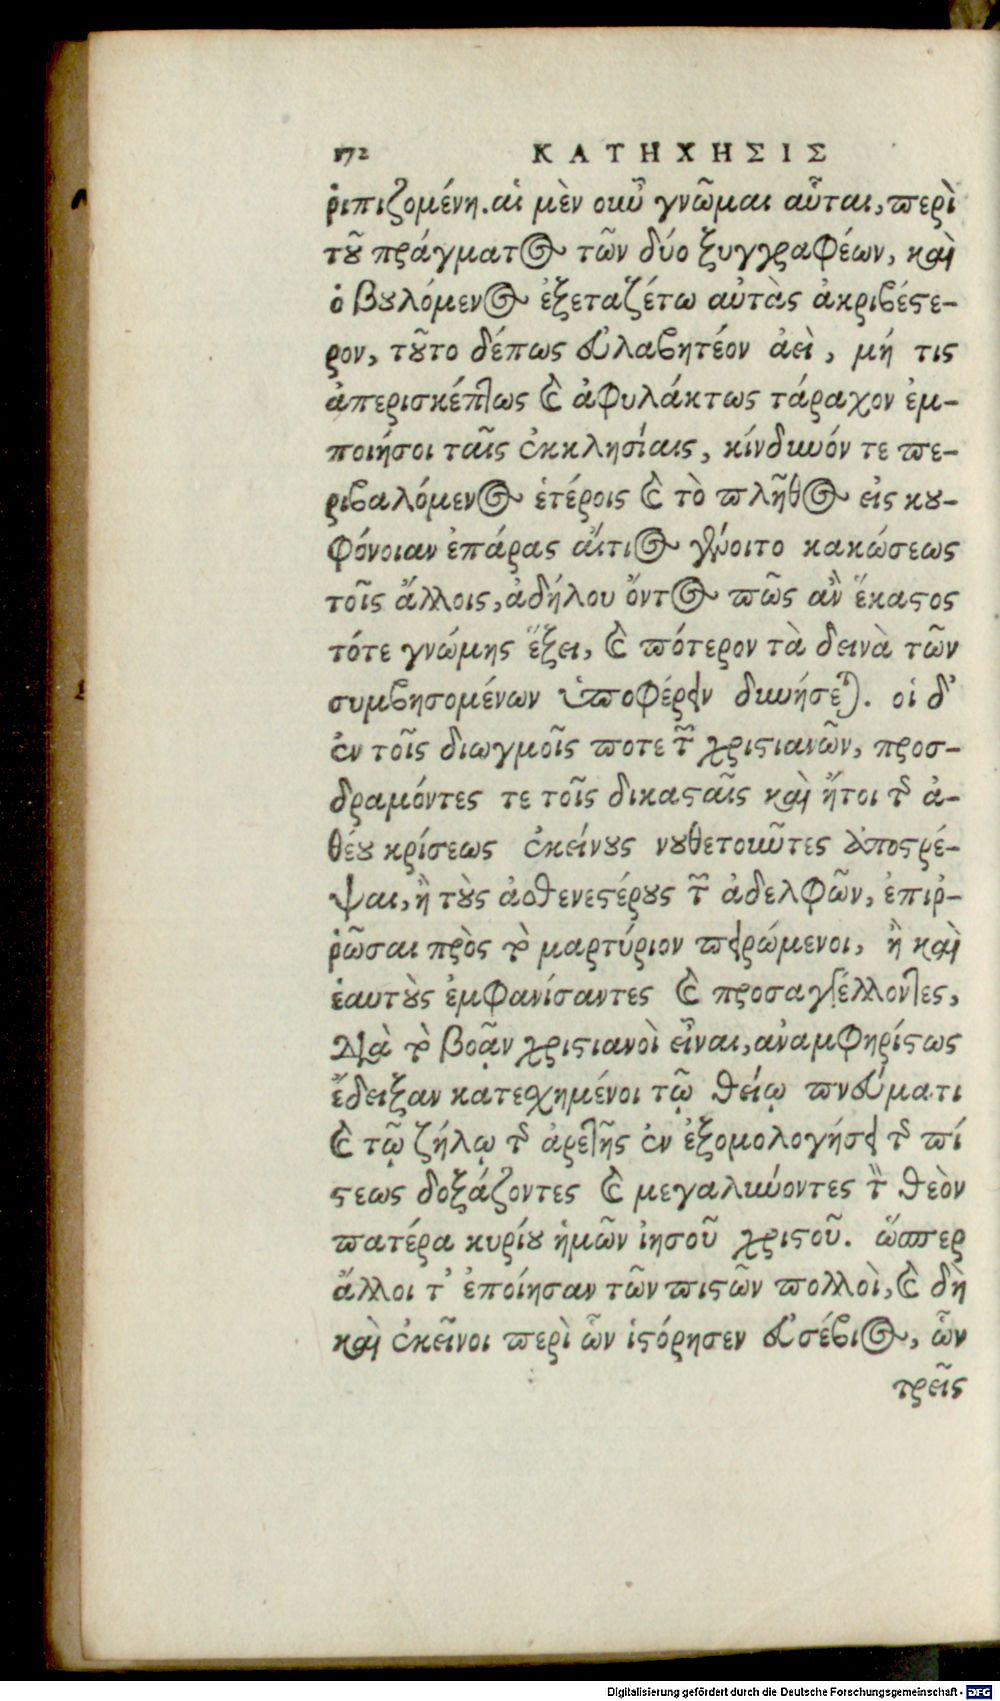 172 ΚΑΤΗΧΗΣΙΣ
ῥιπιζομένη. αἱ μὲν οὖν γνῶμαι αὗται, περὶ
τοῦ πράγματος τῶν δύο ξυγγραφέων, καὶ
ὁ βουλόμενος ἐξεταζέτω αὐτὰς ἀκριβέστε-
ρον, τοῦτο δέπως εὐλαβητέον ἀεὶ, μή τις
ἀπερισκέπτως καὶ ἀφυλάκτως τάραχον ἐμ-
ποιήσοι ταῖς ἐκκλησίαις, κίνδυνόν τε πε-
ριβαλόμενος ἑτέροις καὶ τὸ πλῆθος εἰς κου-
φόνοιαν ἐπάρας αἴτιος γένοιτο κακώσεως
τοῖς ἄλλοις, ἀδήλου ὄντος πῶς ἂν ἕκαστος
τότε γνώμης ἕξει, καὶ πότερον τὰ δεινὰ τῶν
συμβησομένων ὑποφέρειν δυνήσεται. οἱ δ᾽
ἐν τοῖς διωγμοῖς ποτε τῶν χριστιανῶν, προσ-
δραμόντες τε τοῖς δικασταῖς καὶ ἤτοι τῆς ἀ-
θέου κρίσεως ἐκείνους νουθετοῦντες ἀποστρέ-
ψαι, ἢ τοὺς ἀσθενεστέρους τῶν ἀδελφῶν, ἐπιῤ-
ῥῶσαι πρὸς τὸ μαρτύριον πειρώμενοι, ἢ καὶ
ἑαυτοὺς ἐμφανίσαντες καὶ προσαγγέλλοντες,
διὰ τὸ βοᾷν χριστιανοὶ εἶναι, ἀναμφηρίστως
ἔδειξαν κατεχημένοι τῷ θείῳ πνεύματι
καὶ τῷ ζήλῳ τῆς ἀρετῆς ἐν ἐξομολογήσει τῆς πί
στεως δοξάζοντες καὶ μεγαλύνοντες τὸν θεὸν
πατέρα κυρίου ἡμῶν ἰησοῦ χριστοῦ. ὥσπερ
ἄλλοι τ᾽ ἐποίησαν τῶν πιστῶν πολλοὶ, καὶ δὴ
καὶ ἐκεῖνοι περὶ ὧν ἱστόρησεν εὐσέβιος, ὧν
τρεῖς
Digitalisierung gefördert durch die Deutsche Forschungsgemeinschaft - DFG